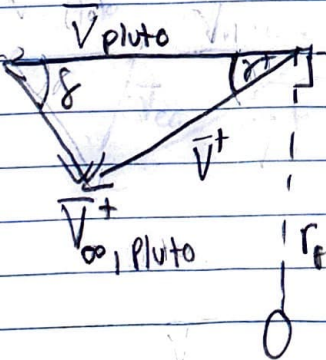 V̅ pluto
γ+
δ
V̅+
V̅+
∞, pluto
r